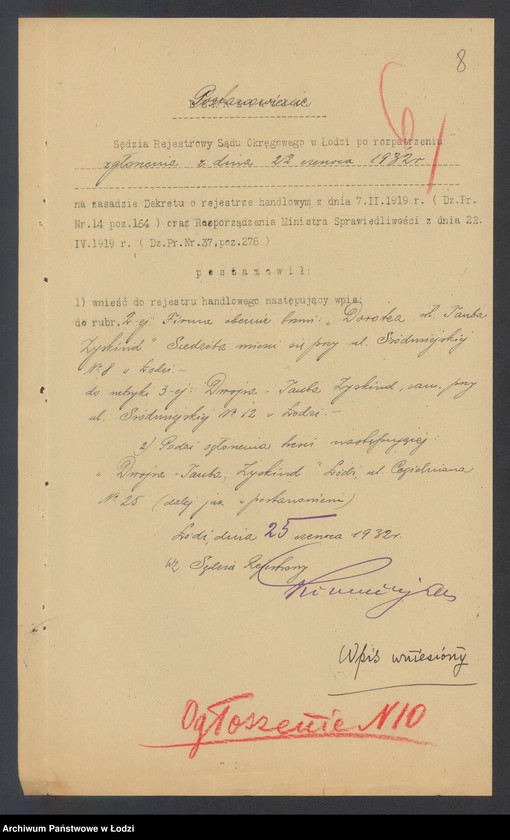 8
61
Postanowienie
Sędzia Rejestrowy Sądu Okręgowego w Łodzi po rozpatrzeniu
zgłoszenia z dnia 22 czerwca 1932 r.
na zasadzie Dekretu o rejestrze handlowym z dnia 7.II.1919 r. ( Dz.Pr.
Nr.14 poz.164 ) oraz Rozporządzenia Ministra Sprawiedliwości z dnia 22.
IV.1919 r. ( Dz.Pr.Nr.37,poz.276 )
p o s t a n o w i ł:
1) wnieść do rejestru handlowego następujący wpis:
do rubr. 2-ej Firma obecnie brzmi: „Dworka Tauba
Zyskind" Siedziba mieści się przy ul. Śródmiejskiej
№ 8 w Łodzi.-
do rubryki 3-ej: Dwojra-Tauba Zyskind, zam. przy
ul. Śródmiejskiej № 12 w Łodzi.-
2) Podać ogłoszenia treści następującej:
„Dwojra-Tauba Zyskind" Łódź, ul. Cegielniana
№ 25 (dalej jak w postanowieniu)
Łódź, dnia 25 czerwca 1932 r.
Wz Sędzia Rejestrowy
Wpis wniesiony
Ogłoszenie N 10
Archiwum Państwowe w Łodzi